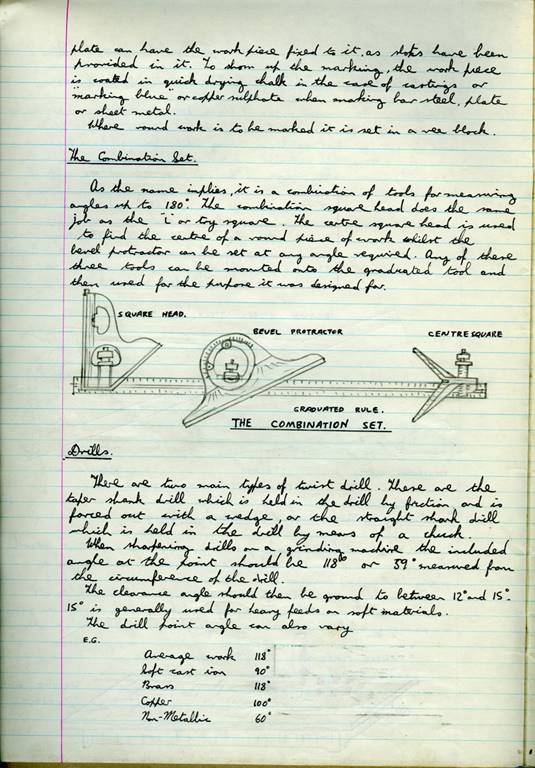 plate can have the work piece fixed to it. as slots have been
provided in it. To show up the marking, the work piece
is coated in quick drying chalk in the case of castings or
"marking blue" or copper sulphate when marking bar steel, plate
or sheet metal.
Where round work is to be marked it is set in a vee block.
The Combination Set.
As the name implies, it is a combination of tools for measuring
angles up to 180° The combination square head does the same
job as the "L" or try square. The centre square head is used
to find the centre of a round piece of work whilst the
bevel protractor can be set at any angle required. Any of these
three tools can be mounted onto the graduated tool and
then used for the purpose it was designed for.
SQUARE HEAD.
BEVEL PROTRACTOR
CENTRE SQUARE
GRADUATED RULE.
THE COMBINATION SET.
Drills.
There are two main types of twist drill. These are the
taper shank drill which is held in the drill by friction and is
forced out with a wedge, or the straight shank drill
which is held in the drill by means of a chuck.
When sharpening drills on a grinding machine the included
angle at the point should be 118° or 59° measured from
the circumference of the drill.
The clearance angle should then be ground to between 12° and 15°.
15° is generally used for heavy feeds on soft materials.
The drill point angle can also vary
E.G.
Average work 118°
Soft cast iron 90°
Brass 118°
Copper 100°
Non-Metallic 60°